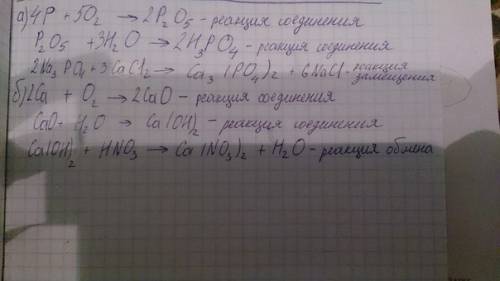 а) 4P + 5O₂ → 2P₂O₅ - реакция соединения
P₂O₅ + 3H₂O → 2H₃PO₄ - реакция соединения
2Na₃PO₄ + 3CaCl₂ → Ca₃(PO₄)₂ + 6NaCl - реакция замещения
б) 2Ca + O₂ → 2CaO - реакция соединения
CaO + H₂O → Ca(OH)₂ - реакция соединения
Ca(OH)₂ + HNO₃ → Ca(NO₃)₂ + H₂O - реакция обмена